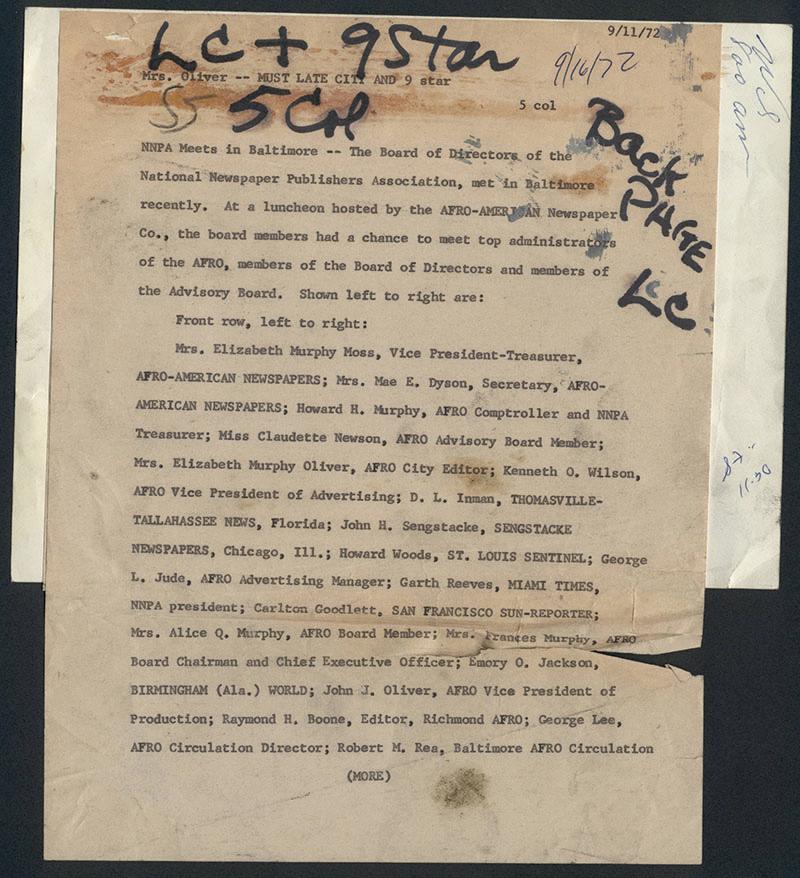 9/11/72
LC + 9 Star
9/16/72
Mrs. Oliver -- MUST LATE CITY AND 9 star
55 5 Col
5 col
Back
PAGE
LC
NNPA Meets in Baltimore -- The Board of Directors of the
National Newspaper Publishers Association, met in Baltimore
recently. At a luncheon hosted by the AFRO-AMERICAN Newspaper
Co., the board members had a chance to meet top administrators
of the AFRO, members of the Board of Directors and members of
the Advisory Board. Shown left to right are:
Front row, left to right:
Mrs. Elizabeth Murphy Moss, Vice President-Treasurer,
AFRO-AMERICAN NEWSPAPERS; Mrs. Mae E. Dyson, Secretary, AFRO-
AMERICAN NEWSPAPERS; Howard H. Murphy, AFRO Comptroller and NNPA
Treasurer; Miss Claudette Newson, AFRO Advisory Board Member;
Mrs. Elizabeth Murphy Oliver, AFRO City Editor; Kenneth O. Wilson,
AFRO Vice President of Advertising; D. L. Inman, THOMASVILLE-
TALLAHASSEE NEWS, Florida; John H. Sengstacke, SENGSTACKE
NEWSPAPERS, Chicago, Ill.; Howard Woods, ST. LOUIS SENTINEL; George
L. Jude, AFRO Advertising Manager; Garth Reeves, MIAMI TIMES,
NNPA president; Carlton Goodlett, SAN FRANCISCO SUN-REPORTER;
Mrs. Alice Q. Murphy, AFRO Board Member; Mrs. Frances Murphy, AFRO
Board Chairman and Chief Executive Officer; Emory O. Jackson,
BIRMINGHAM (Ala.) WORLD; John J. Oliver, AFRO Vice President of
Production; Raymond H. Boone, Editor, Richmond AFRO; George Lee,
AFRO Circulation Director; Robert M. Rea, Baltimore AFRO Circulation
(MORE)